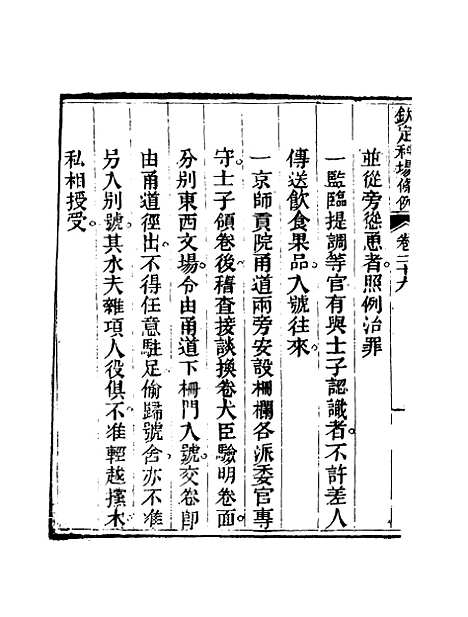 欽定科場條例 卷二十九
並從旁慫恿者照例治罪
一監臨提調等官有與士子認識者不許差人
傳送飲食果品入號往來
一京師貢院甬道兩旁安設柵欄各派委官專
守士子領卷後稽查接談換卷大臣驗明卷面
分別東西文場令由甬道下柵門入號交卷卽
由甬道徑出不得任意駐足偷歸號舍亦不准
另入別號其水夫雜項人役俱不准輕越擡木
私相授受